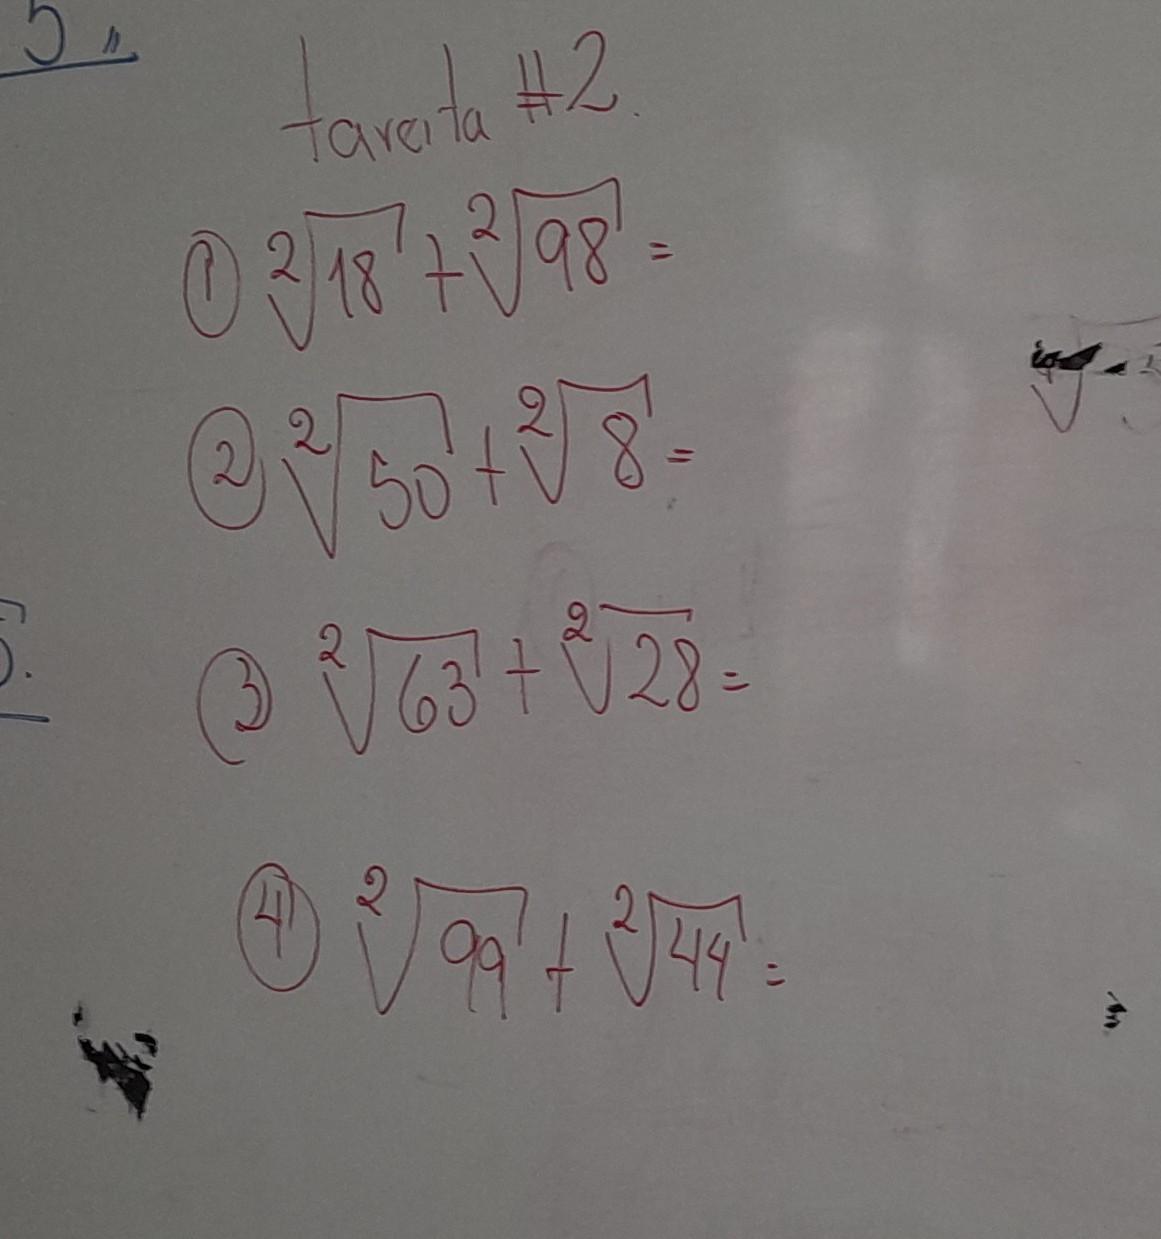 5 "
tareita #2.
① ²√18 + ²√98 =
② ²√50 + ²√8 =
③ ²√63 + ²√28 =
④ ²√99 + ²√44 =